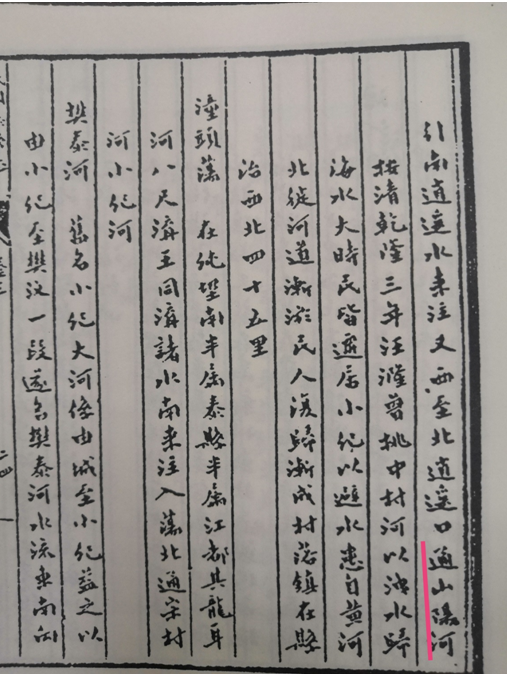 引南逍遥水来注又西至北逍遥口通山陽河
按清乾隆三年汪漋曾挑中村河以洩水歸
海水大時民皆遷居小紀以避水患自黄河
北徙河道漸淤民人復歸漸成村落鎮在縣
治西北四十五里
潼頭蕩 在紀墅南半屬泰縣半屬江都其龍耳
河八尺溝王同溝諸水南来注入蕩北通宗村
河小紀河
樊泰河 舊名小紀大河係由城至小紀益之以
由小紀至樊汶一段遂名樊泰河水流東南向